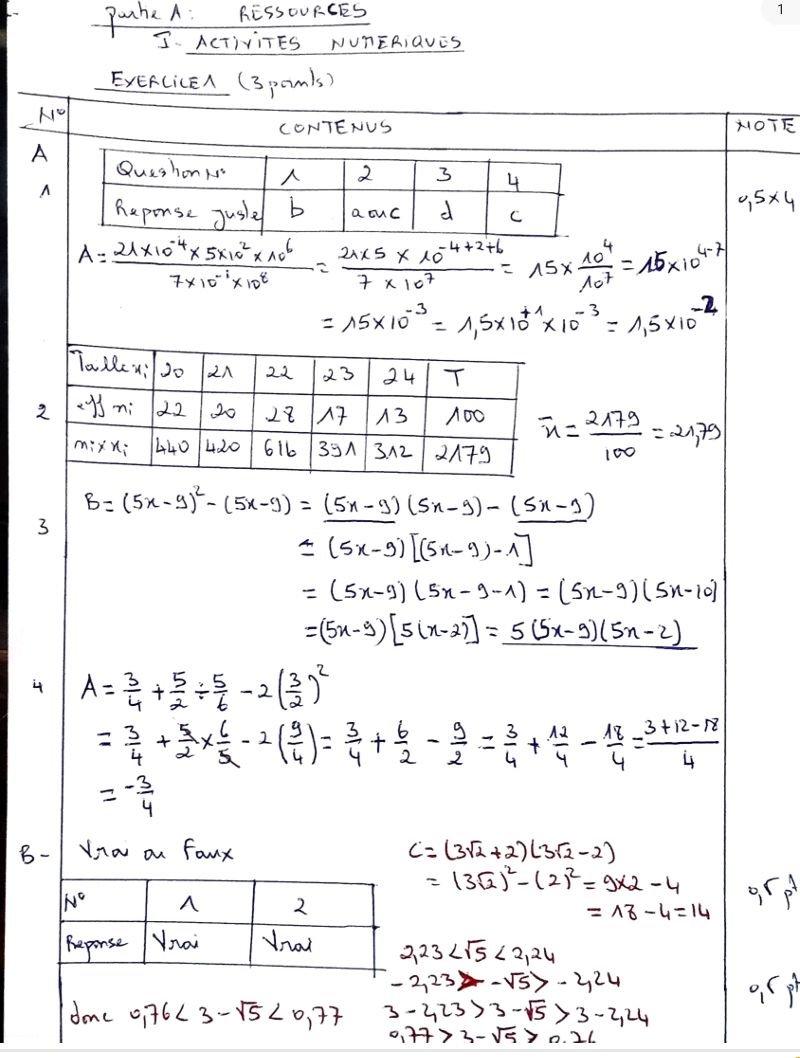 1
partie A : RESSOURCES
I- ACTIVITES NUMERIQUES
EXERCICE 1 (3 points)
N° CONTENUS NOTE
A
Question N° 1 2 3 4
1
Reponse juste b a ou c d c
0,5 x 4
A = 21×10⁻⁴×5×10²×10⁶ / 7×10⁻¹×10⁸ = 21×5 × 10⁻⁴⁺²⁺⁶ / 7 × 10⁷ = 15 × 10⁴/10⁷ = 15×10⁴⁻⁷
= 15×10⁻³ = 1,5×10⁺¹×10⁻³ = 1,5×10⁻²
Taille xi 20 21 22 23 24 T
2 eff ni 22 20 28 17 13 100
ni x xi 440 420 616 391 312 2179
x̄ = 2179/100 = 21,79
3 B = (5x-9)² - (5x-9) = (5x-9)(5x-9) - (5x-9)
= (5x-9)[(5x-9)-1]
= (5x-9)(5x-9-1) = (5x-9)(5x-10)
= (5x-9)[5(x-2)] = 5(5x-9)(5x-2)
4 A = 3/4 + 5/2 ÷ 5/6 - 2(3/2)²
= 3/4 + 5/2 × 6/5 - 2(9/4) = 3/4 + 6/2 - 9/2 = 3/4 + 12/4 - 18/4 = 3+12-18 / 4
= -3/4
B- Vrai ou Faux
N° 1 2
Reponse Vrai Vrai
C = (3√2+2)(3√2-2)
= (3√2)² - (2)² = 9×2 - 4
= 18 - 4 = 14
0,5 pt
2,23 < √5 < 2,24
-2,23 > -√5 > -2,24
3-2,23 > 3-√5 > 3-2,24
0,77 > 3-√5 > 0,76
donc 0,76 < 3-√5 < 0,77
0,5 pt